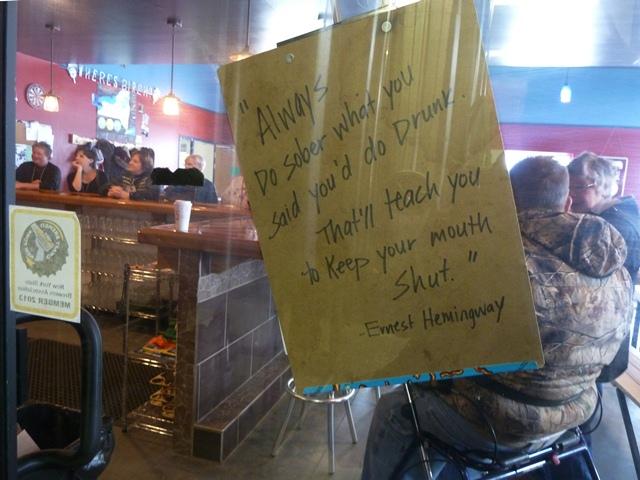 "Always
Do sober what you
said you'd do Drunk.
That'll teach you
to Keep your mouth
Shut."
-Ernest Hemingway
New York State
Brewers Association
MEMBER 2013